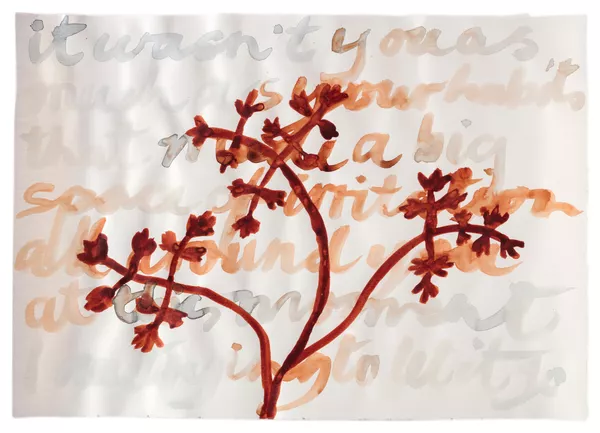 it wasn't you as
much as your habits,
that a big
of irritation
all around you
at this moment
I'm trying to let it go